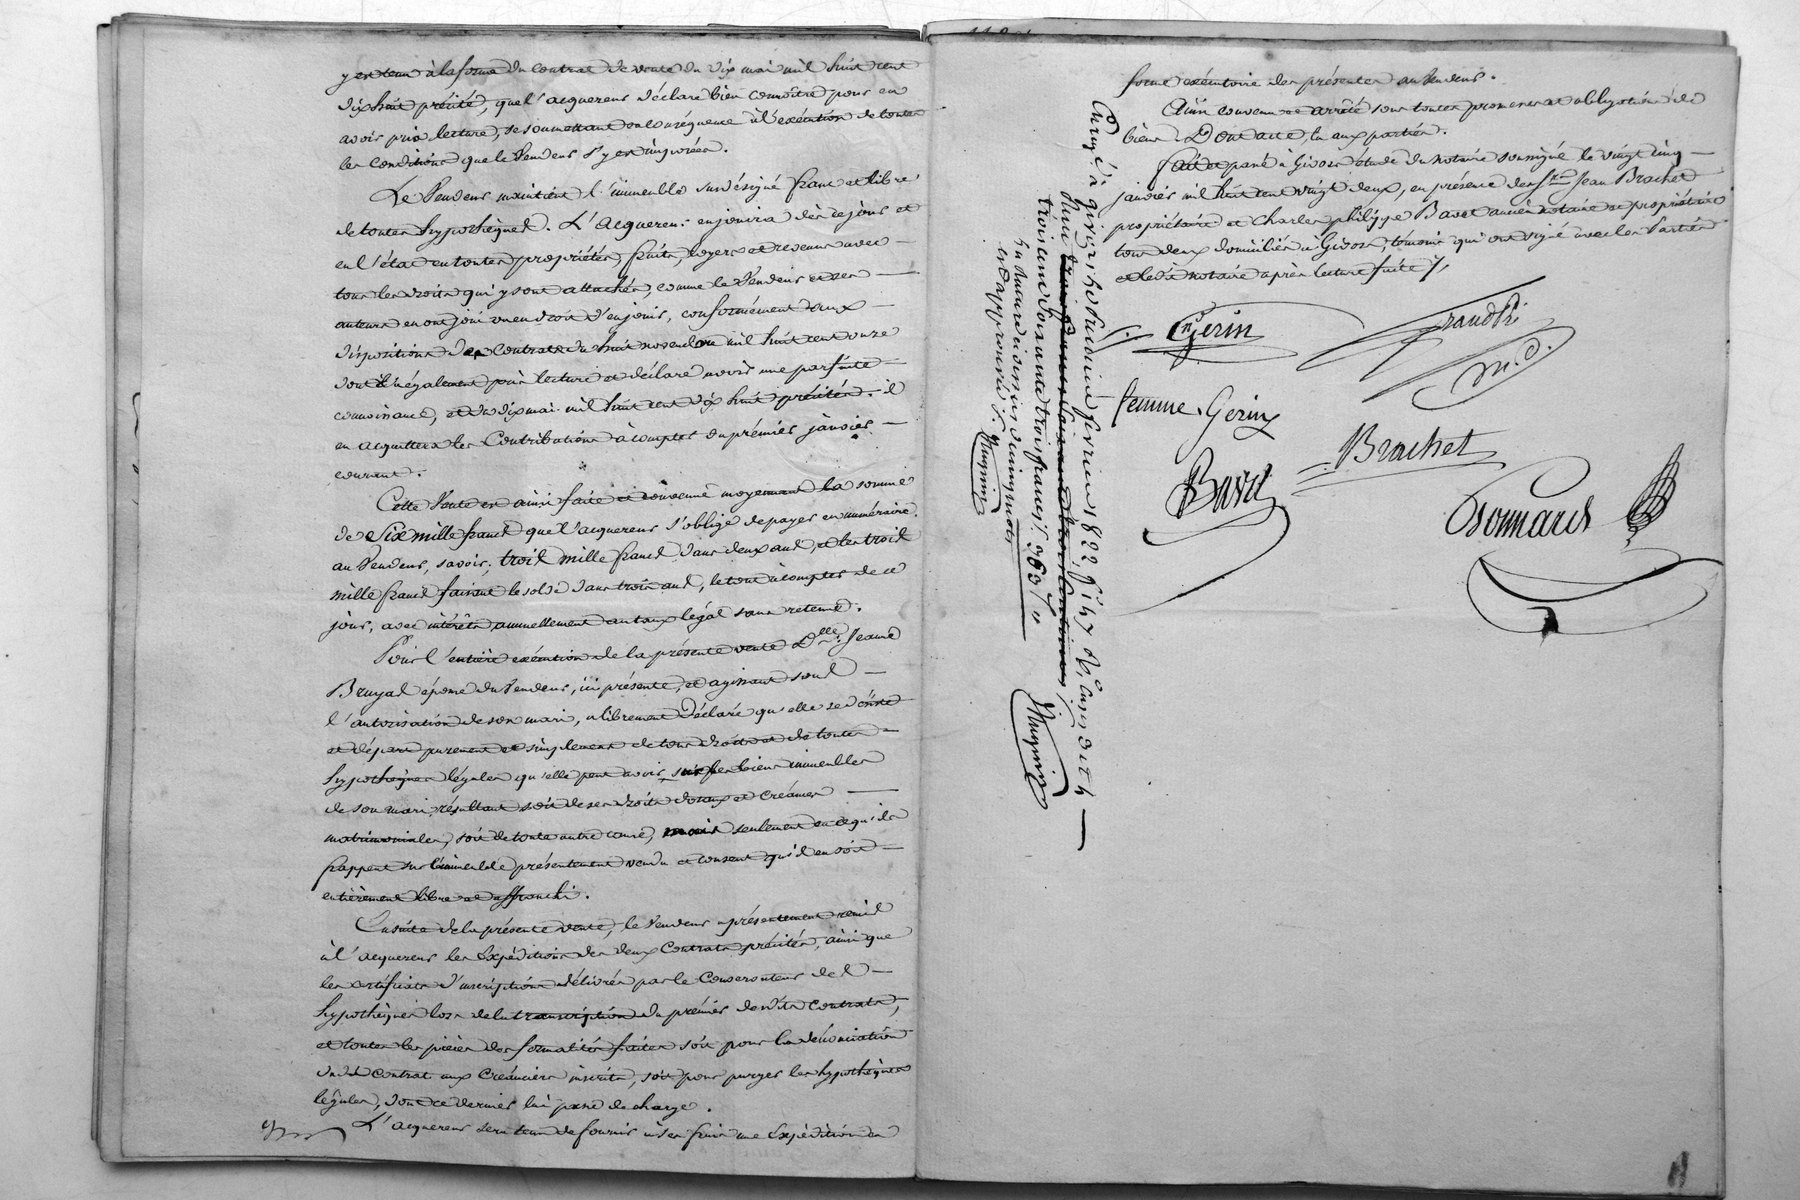 y est tenu à la forme du contrat de vente du dix mai mil huit cent
dix huit précité, que l'acquereur déclare bien connoître pour en
avoir pris lecture, se soumettant en conséquence à l'exécution de toutes
les conditions que le Vendeur s'y est imposées.
Le Vendeur maintient l'immeuble susdésigné franc et libre
de toutes hypothèques. L'acquereur en jouira dès ce jour et
en l'état en toutes propriétés, fruits, loyers et revenus avec
tous les droits qui y sont attachés, comme le Vendeur et ses
auteurs en ont joui ou eu droit d'en jouir, conformément aux
dispositions des contrats du huit novembre mil huit cent onze
dont il a également pris lecture et déclare avoir une parfaite
connoissance, et du dix mai mil huit cent dix huit précités. il
en acquittera les Contributions à compter du premier janvier
courant.
Cette Vente est ainsi faite et convenue moyennant la somme
de Six mille francs que l'acquereur s'oblige de payer en numéraire
au Vendeur, savoir; trois mille francs dans deux ans, et les trois
mille francs faisant le solde dans trois ans, le tout à compter de ce
jour, avec intérêts annuellement au taux légal sans retenue.
Pour l'entière exécution de la présente vente D.lle Jeanne
Bruyas épouse du Vendeur, ici présente, et agissant sous
l'autorisation de son mari, a librement déclaré qu'elle se démet
et départ purement et simplement de tous droits et de toutes
hypothèques légales qu'elle peut avoir, sur les biens immeubles
de son mari, résultant soit de ses droits dotaux et créances
matrimoniales, soit de toute autre cause, mais seulement en ce qu'ils
frappent sur l'immeuble présentement vendu et consent qu'il en soit
entièrement libre et affranchi.
Ensuite de la présente vente, le Vendeur a présentement remis
à l'acquereur les Expéditions des deux Contrats précités, ainsi que
les certificats d'inscriptions délivrés par le Conservateur des
hypothèques lors de la transcription du premier desdits contrats,
et toutes les pièces des formalités faites soit pour la dénonciation
dudit contrat aux Créanciers inscrits, soit pour purger les hypothèques
légales, dont ce dernier lui passe décharge.
L'acquereur sera tenu de fournir à ses frais une Expédition en
forme exécutoire des présentes au Vendeur.
Ainsi convenu et arrêté sous toutes promesses et obligations de
biens. Dont acte, lu aux parties.
Fait et passé à Givors étude du notaire soussigné le vingt cinq
janvier mil huit cent vingt deux, en présence des Srs Jean Brachet
propriétaire et Charles philippe Bavet ancien notaire et propriétaire
tous deux domiciliés à Givors, témoins qui ont signé avec les Parties
et ledit notaire après lecture faite /.
Gerin
Grandpré
femme Gerin
Brachet
Bavet
Bonnard
Enreg.é à givors le huit février 1822, f.
trois cent soixante trois francs. 363 f. "